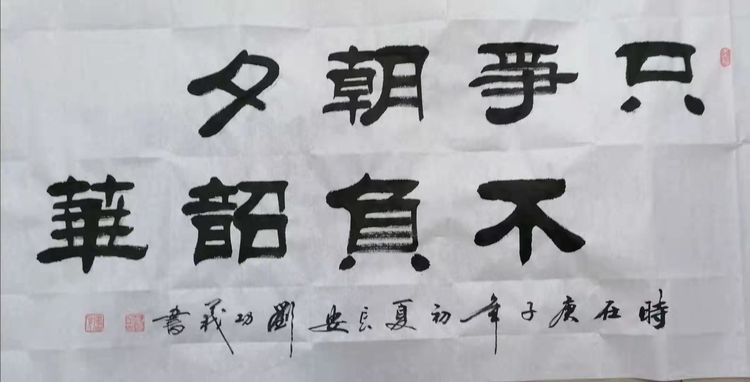 只爭朝夕
不負韶華
時在庚子年初夏長安劉功義書